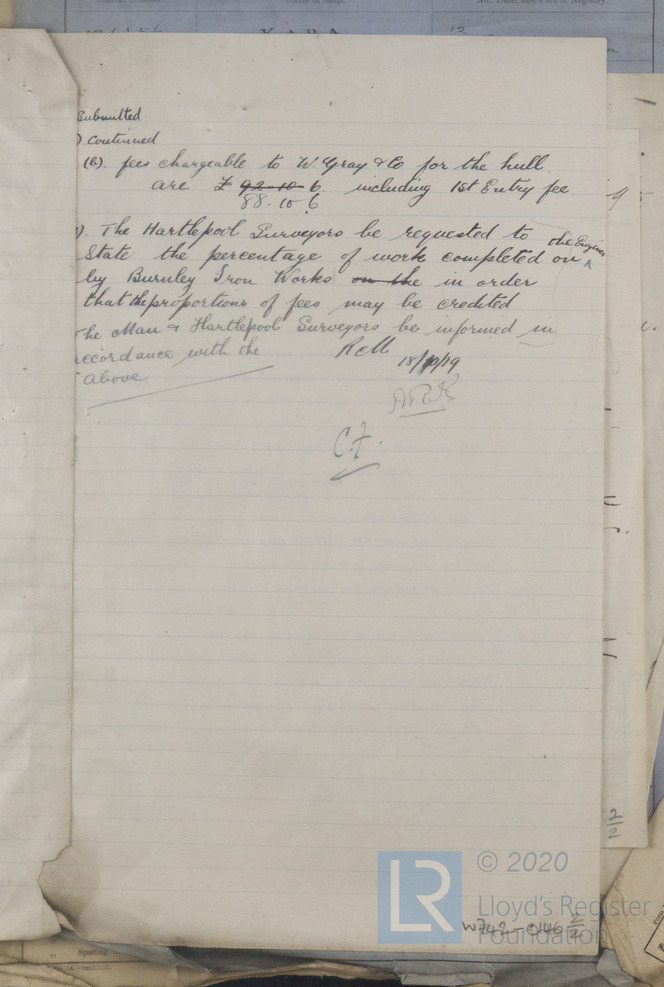 Submitted
) Continued
(b). fees chargeable to W. Gray & Co for the hull
are £ 92-10-6. including 1st Entry fee
88.10 6
). The Hartlepool Surveyors be requested to
State the percentage of work completed on the Engines
by Burnley Iron Works on the in order
that the proportions of fees may be credited
The Man & Hartlepool Surveyors be informed in
accordance with the
above
18/10/19
C.F.
2/2
© 2020
Lloyd's Register
Foundation
W742-0146 2/2